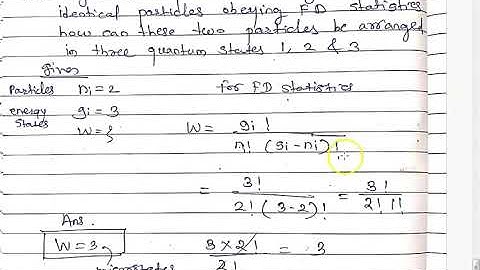 identical particles obeying FD statistics
how can these two particles be arranged
in three quantum states 1, 2 & 3
Given
Particles ni = 2 for FD statistics
energy states gi = 3
W = ? W = gi ! / n! (gi - ni) !
= 3! / 2! (3-2)! = 3! / 2! 1!
Ans.
W = 3 3 x 2! / 2! = 3
microstates